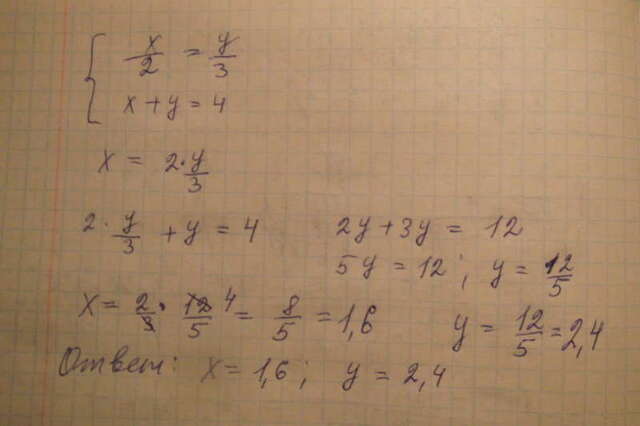 { x/2 = y/3
x + y = 4
x = 2 · y/3
2 · y/3 + y = 4
2y + 3y = 12
5y = 12 ; y = 12/5
x = 2/3 · 12/5 4 = 8/5 = 1,6
y = 12/5 = 2,4
Ответ: x = 1,6 ; y = 2,4